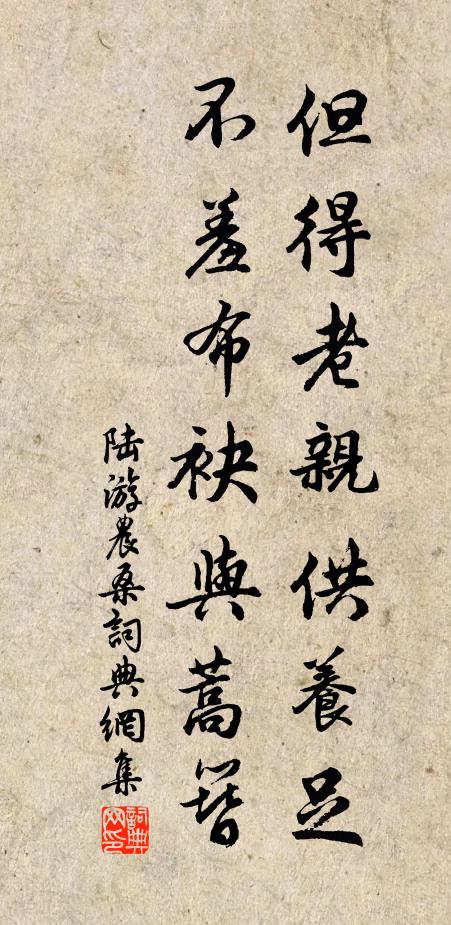 但得老親供養足
不羞布袂與蒿簪
陸游農桑詞典網集
詞典網印